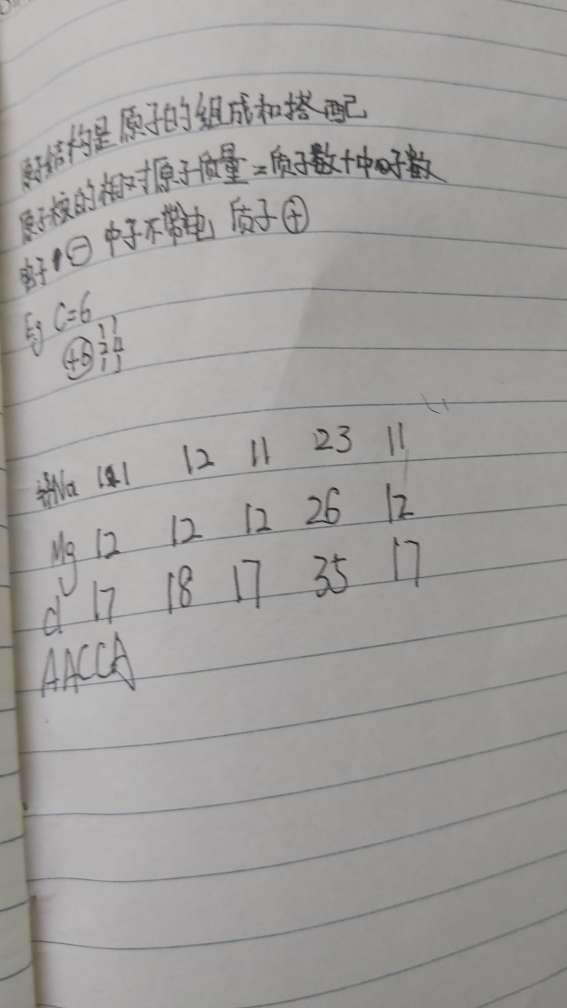 原子结构是原子的组成和搭配
原子核的相对原子质量=质子数+中子数
电子⊖ 中子不带电 质子⊕
Eg C=6
+6 2 4
Na 11 12 11 23 11
Mg 12 12 12 26 12
Cl 17 18 17 35 17
AACCA